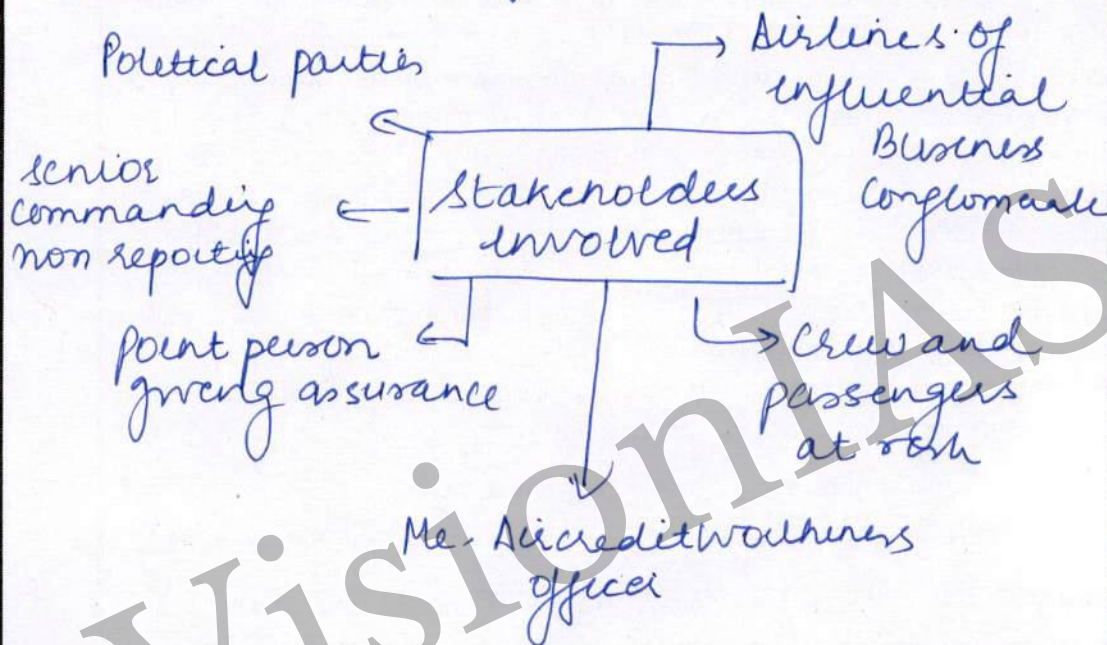 Political parties
Airlines of
influential
Business
Conglomerate
senior
commanding
non reporting
Stakeholders
involved
point person
giving assurance
Crew and
passengers
at risk
Me - Aircreditworthiness
officer
VisionIAS